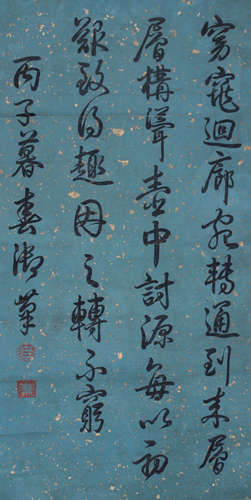 窈窕迴廊宛轉通到來層
層構聳壺中討源每以初
艱致得趣因之轉不窮
丙子暮春御筆